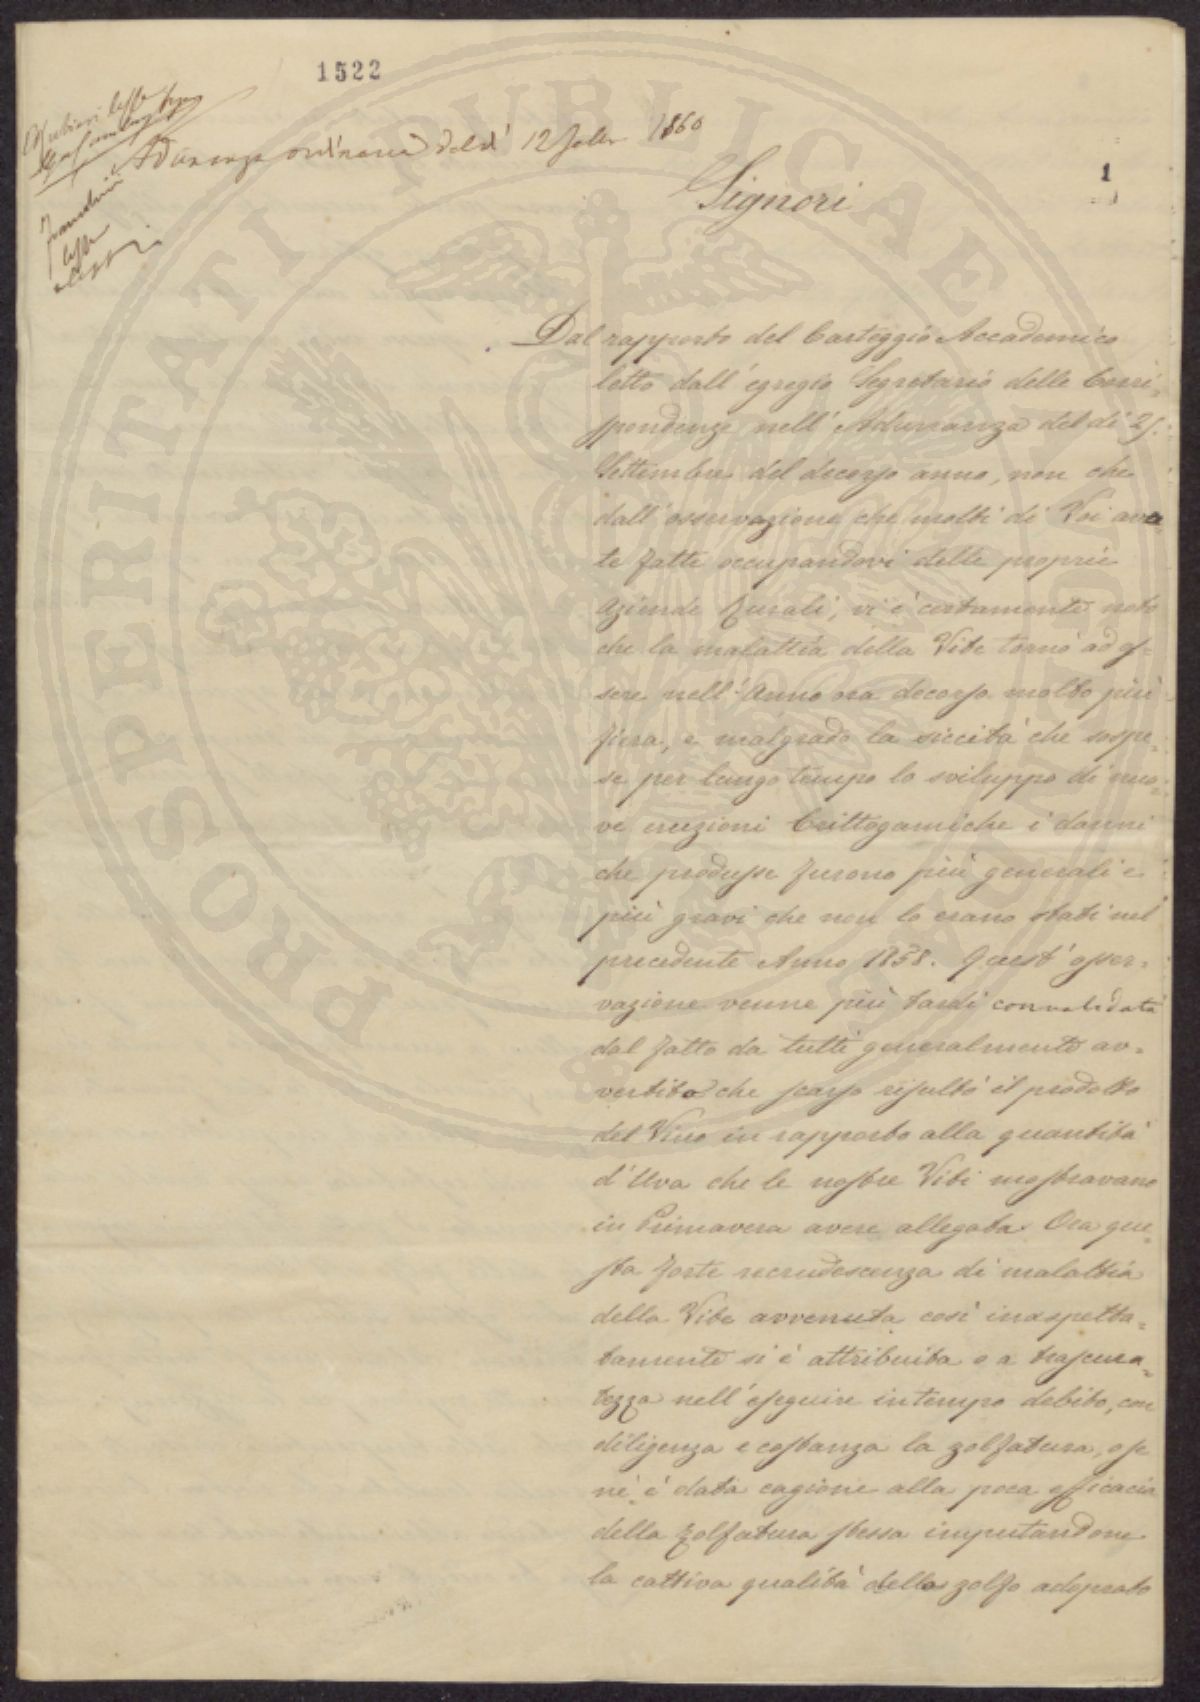 1522
Adunanza ordinaria del dì 12 1860
Signori
1
Dal rapporto del Carteggio Accademico
letto dall' egregio Segretario delle Corri-
spondenze nell' Adunanza del dì 25.
Settembre del decorso anno, non che
dall' osservazione che molti di Voi ave-
te fatte occupandovi delle proprie
Aziende Rurali, vi è certamente noto
che la malattia della Vite tornò ad es-
sere nell' Anno ora decorso molto più
fiera, e malgrado la siccità che sospe-
se per lungo tempo lo sviluppo di nuo-
ve Crittogamiche i danni
che produsse furono più generali e
più gravi che non lo erano stati nel
precedente Anno 1858. Quest' osser-
vazione venne più tardi convalidata
dal fatto da tutti generalmente av-
vertito che scarso risultò il prodotto
del Vino in rapporto alla quantità
d' Uva che le nostre Viti mostravano
in Primavera avere allegata. Ora que-
sta forte recrudescenza di malattia
della Vite avvenuta così inaspetta-
tamente si è attribuita o a trascura-
tezza nell' eseguire in tempo debito, con
diligenza e costanza la zolfatura, o se
nè è data cagione alla poca efficacia
della zolfatura stessa imputandone
la cattiva qualità dello zolfo adoprato
PROSPERITATI PUBLICAE AUGENDAE